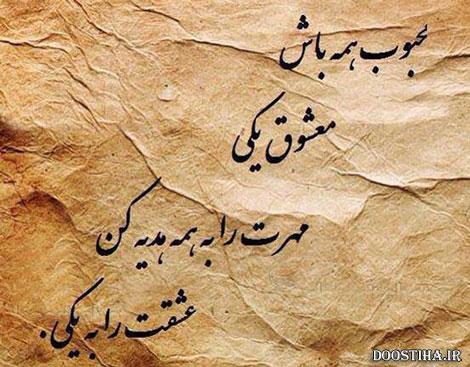 محبوب همه باش
معشوق یکی
مهرت را به همه هدیه کن
عشقت را به یکی.
DOOSTIHA.IR